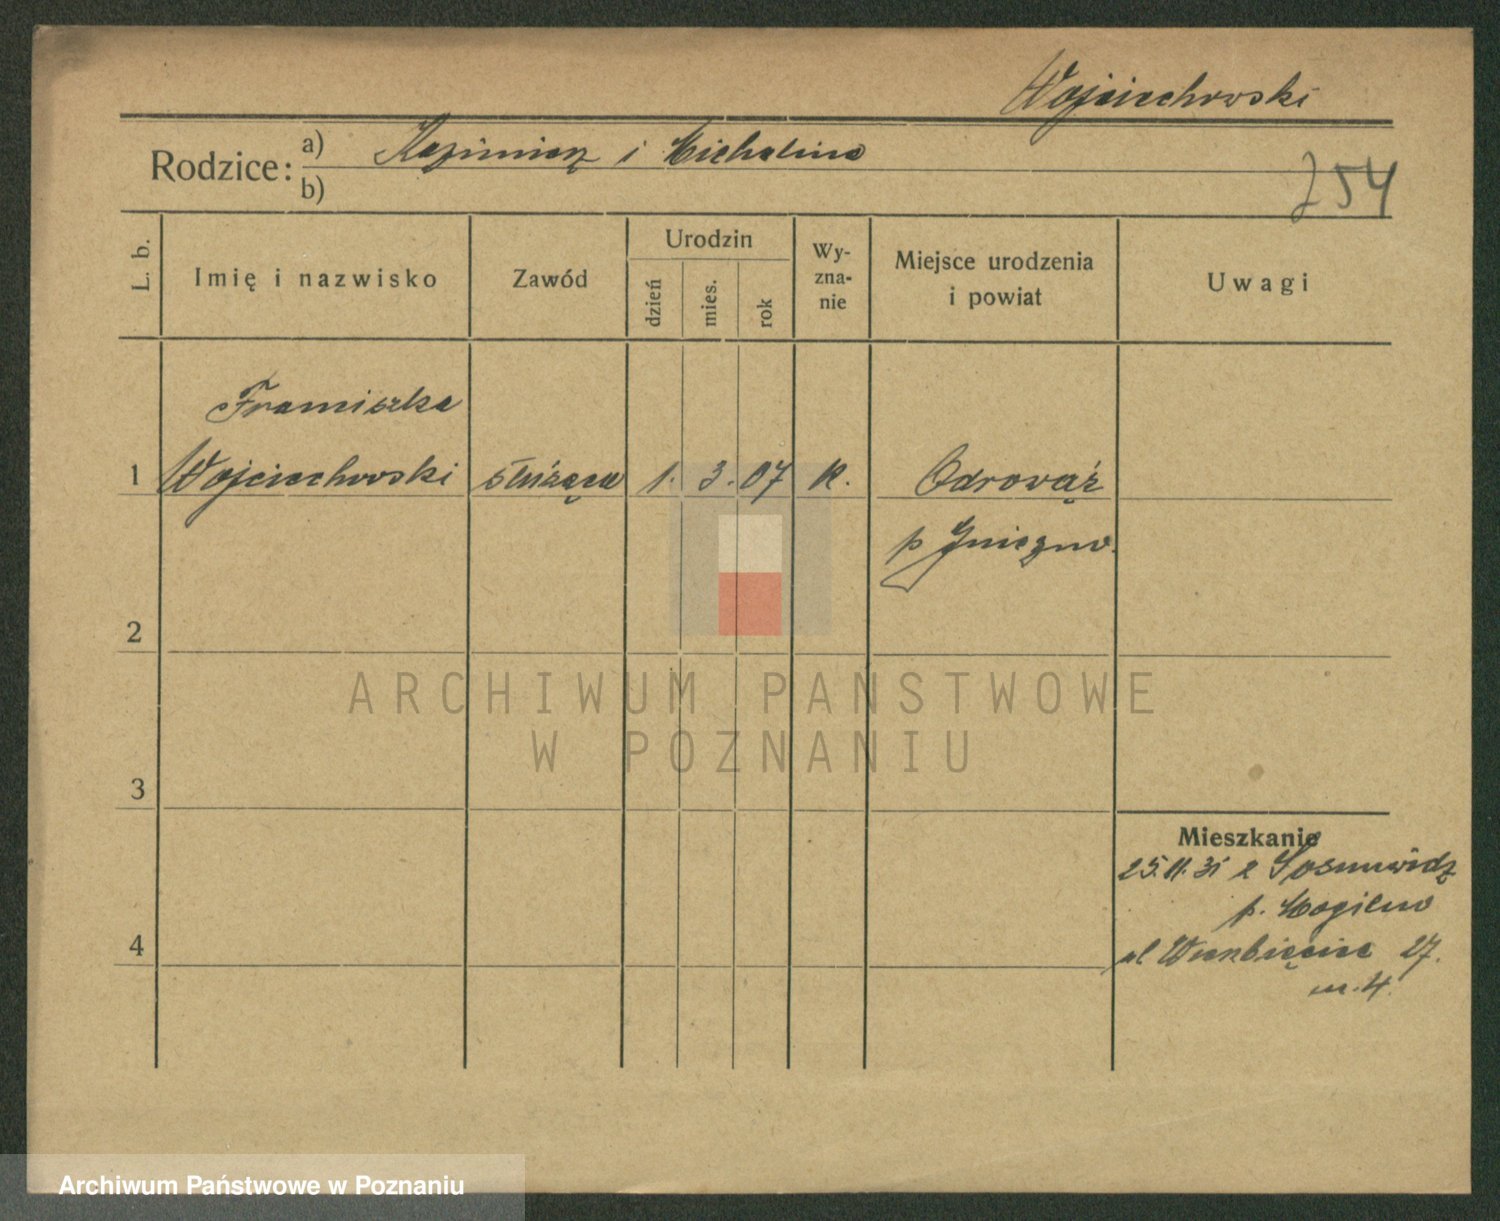 Wojciechowski
Rodzice: a) Kazimierz i Michalina
b)
254
L. b.
Imię i nazwisko
Zawód
Urodzin
dzień
mies.
rok
Wy-
zna-
nie
Miejsce urodzenia
i powiat
Uwagi
Franciszka
1 Wojciechowski służąca 1. 3. 07 K. Odrowąż
p Gniezno.
2
ARCHIWUM PAŃSTWOWE
W POZNANIU
3
Mieszkanie
25.11.31 z
p. Mogilno
4
27.
m. 4.
Archiwum Państwowe w Poznaniu